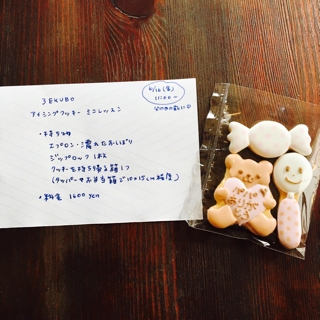 3EKUBO
アイシングクッキー ミニレッスン
6/16(金)
11:00〜
父の日の前に♡
・持ち物
エプロン・濡れたおしぼり
ジップロック 1枚
クッキーを持ち帰る箱 1つ
(タッパーやお弁当箱で10×15cm程度)
・料金 1600 yen
ありがとう